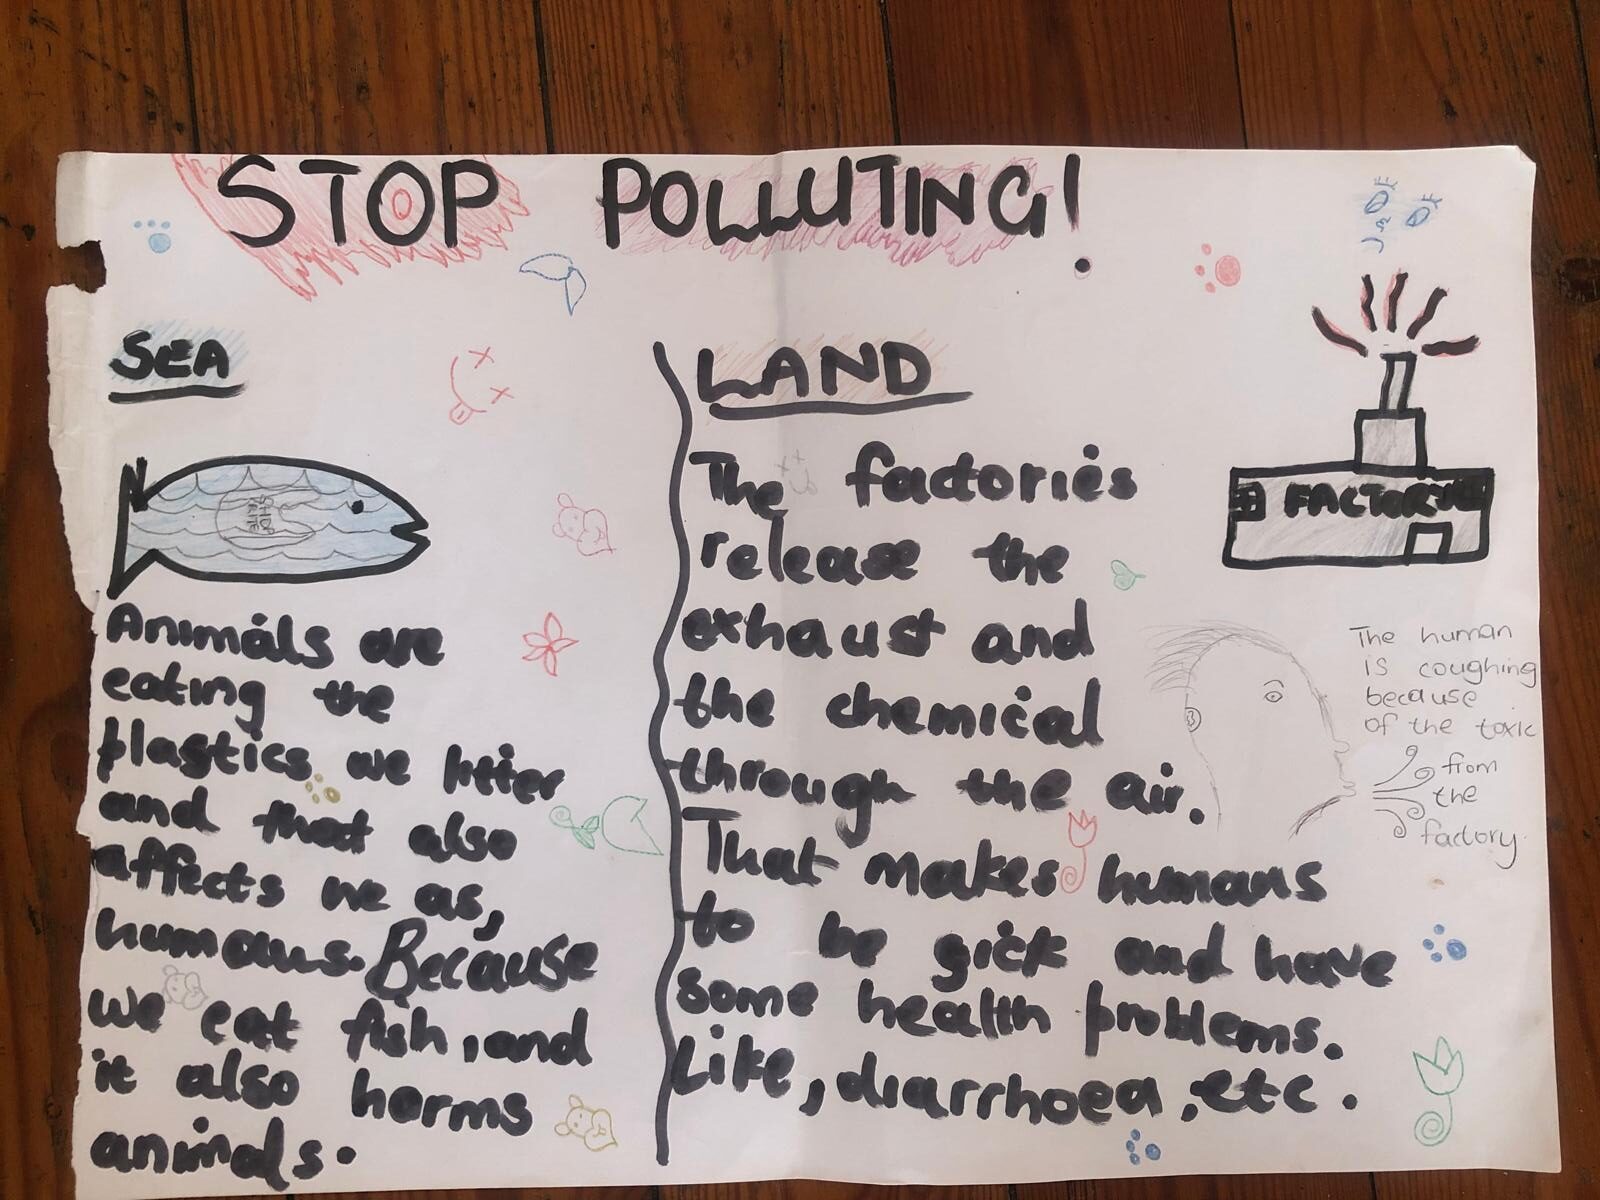 STOP POLLUTING!
SEA
Animals are
eating the
plastics we litter
and that also
affects we as,
humans. Because
we eat fish, and
it also harms
animals.
LAND
The factories
release the
exhaust and
the chemical
through the air.
That makes humans
to be sick and have
some health problems.
Like, diarrhoea, etc.
FACTORY
The human
is coughing
because
of the toxic
from
the
factory.